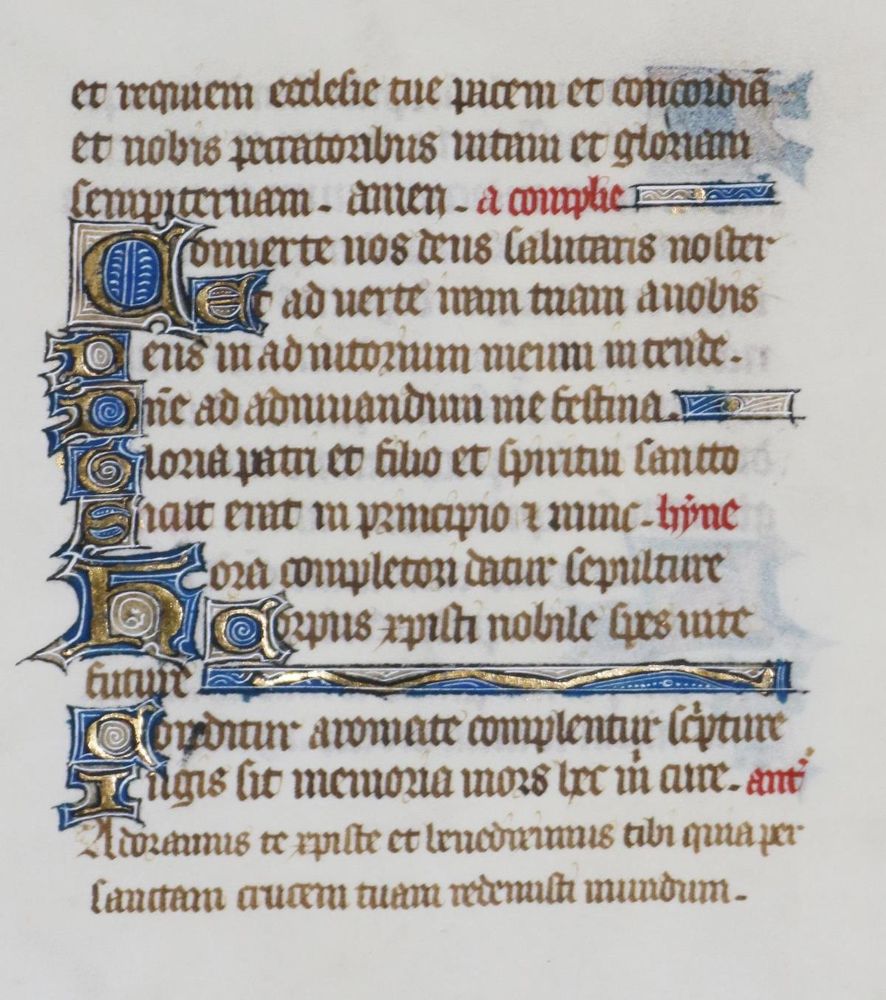 et requiem ecclesie tue pacem et concordiā
et nobis peccatoribus uitam et gloriam
sempiternam. amen. a complie
Conuerte nos deus salutaris noster
Et ad uerte iram tuam anobis
Deus in ad iutorium meum intende.
Dn̄e ad adiuuandum me festina.
Gloria patri et filio et spiritui santto
Sicut erat in principio ⁊ nunc. hȳne
Hora completorii datur sepulture
Corpus xpisti nobile spes uite
future
Conditur aromate complentur sc'pture
Iugis sit memoria mors hec in cure. ant'
Adoramus te xpiste et benedicimus tibi quia per
sanctam crucem tuam redemisti mundum.